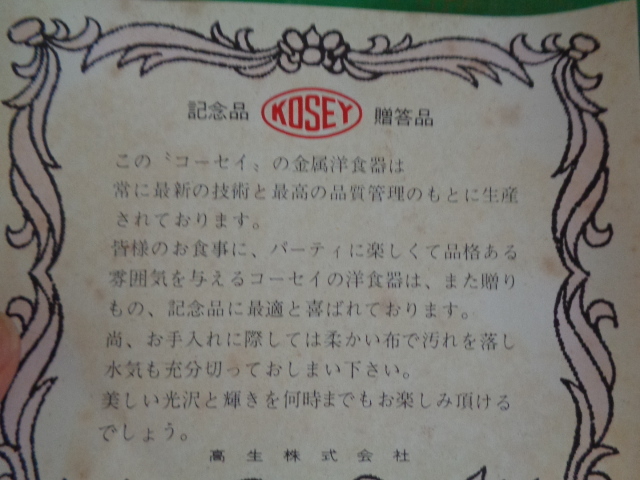 記念品 KOSEY 贈答品
この〝コーセイ〟の金属洋食器は
常に最新の技術と最高の品質管理のもとに生産
されております。
皆様のお食事に、パーティに楽しくて品格ある
雰囲気を与えるコーセイの洋食器は、また贈り
もの、記念品に最適と喜ばれております。
尚、お手入れに際しては柔かい布で汚れを落し
水気も充分切っておしまい下さい。
美しい光沢と輝きを何時までもお楽しみ頂ける
でしょう。
高生株式会社